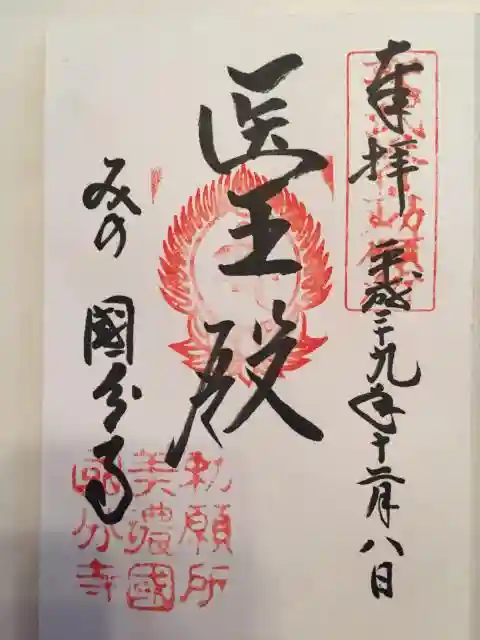 奉拝
平成二十九年十二月八日
医王殿
みの 國分寺
勅願所
美濃國
國分寺